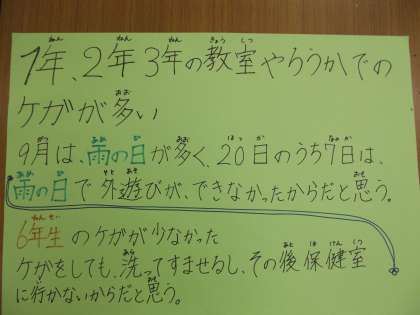 1年、2年 3年の教室やろうかでの
ケガが多い
9月は、雨の日が多く、20日のうち7日は、
雨の日で外遊びが、できなかったからだと思う。
6年生のケガが少なかった
ケガをしても、洗ってすませるし、その後保健室
に行かないからだと思う。